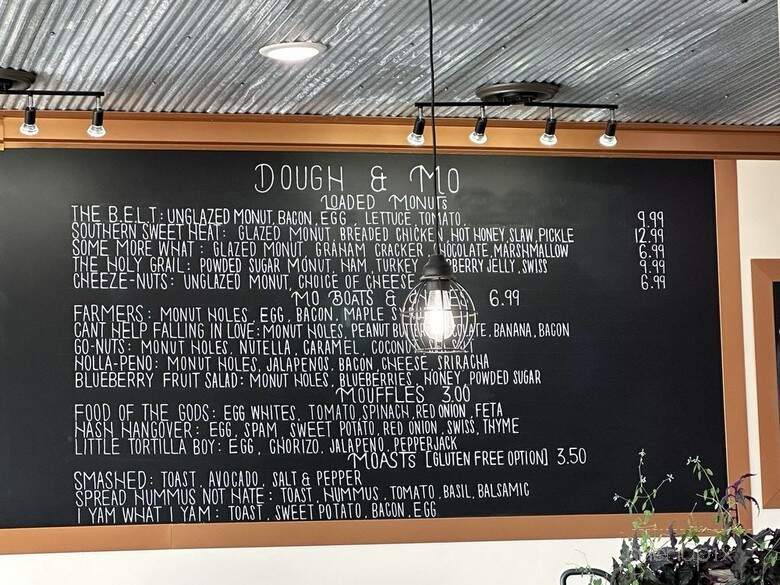 DOUGH & MO
LOADED MONUTS
THE B.E.L.T: UNGLAZED MONUT, BACON, EGG, LETTUCE, TOMATO, 9.99
SOUTHERN SWEET HEAT: GLAZED MONUT, BREADED CHICKEN, HOT HONEY, SLAW, PICKLE 12.99
SOME MORE WHAT: GLAZED MONUT, GRAHAM CRACKER, CHOCOLATE, MARSHMALLOW 6.99
THE HOLY GRAIL: POWDERED SUGAR MONUT, HAM, TURKEY, JELLY, SWISS 9.99
CHEEZE-NUTS: UNGLAZED MONUT, CHOICE OF CHEESE 6.99
MO BOATS & 6.99
FARMERS: MONUT HOLES, EGG, BACON, MAPLE
CANT HELP FALLING IN LOVE: MONUT HOLES, PEANUT BUTTER, BANANA, BACON
GO-NUTS: MONUT HOLES, NUTELLA, CARAMEL,
HOLLA-PENO: MONUT HOLES, JALAPENOS, BACON, CHEESE, SRIRACHA
BLUEBERRY FRUIT SALAD: MONUT HOLES, BLUEBERRIES, HONEY, POWDED SUGAR
MOUFFLES 3.00
FOOD OF THE GODS: EGG WHITES, TOMATO, SPINACH, RED ONION, FETA
HASH HANGOVER: EGG, SPAM, SWEET POTATO, RED ONION, SWISS, THYME
LITTLE TORTILLA BOY: EGG, CHORIZO, JALAPENO, PEPPERJACK
MOASTS [GLUTEN FREE OPTION] 3.50
SMASHED: TOAST, AVOCADO, SALT & PEPPER
SPREAD HUMMUS NOT HATE: TOAST, HUMMUS, TOMATO, BASIL, BALSAMIC
I YAM WHAT I YAM: TOAST, SWEET POTATO, BACON, EGG